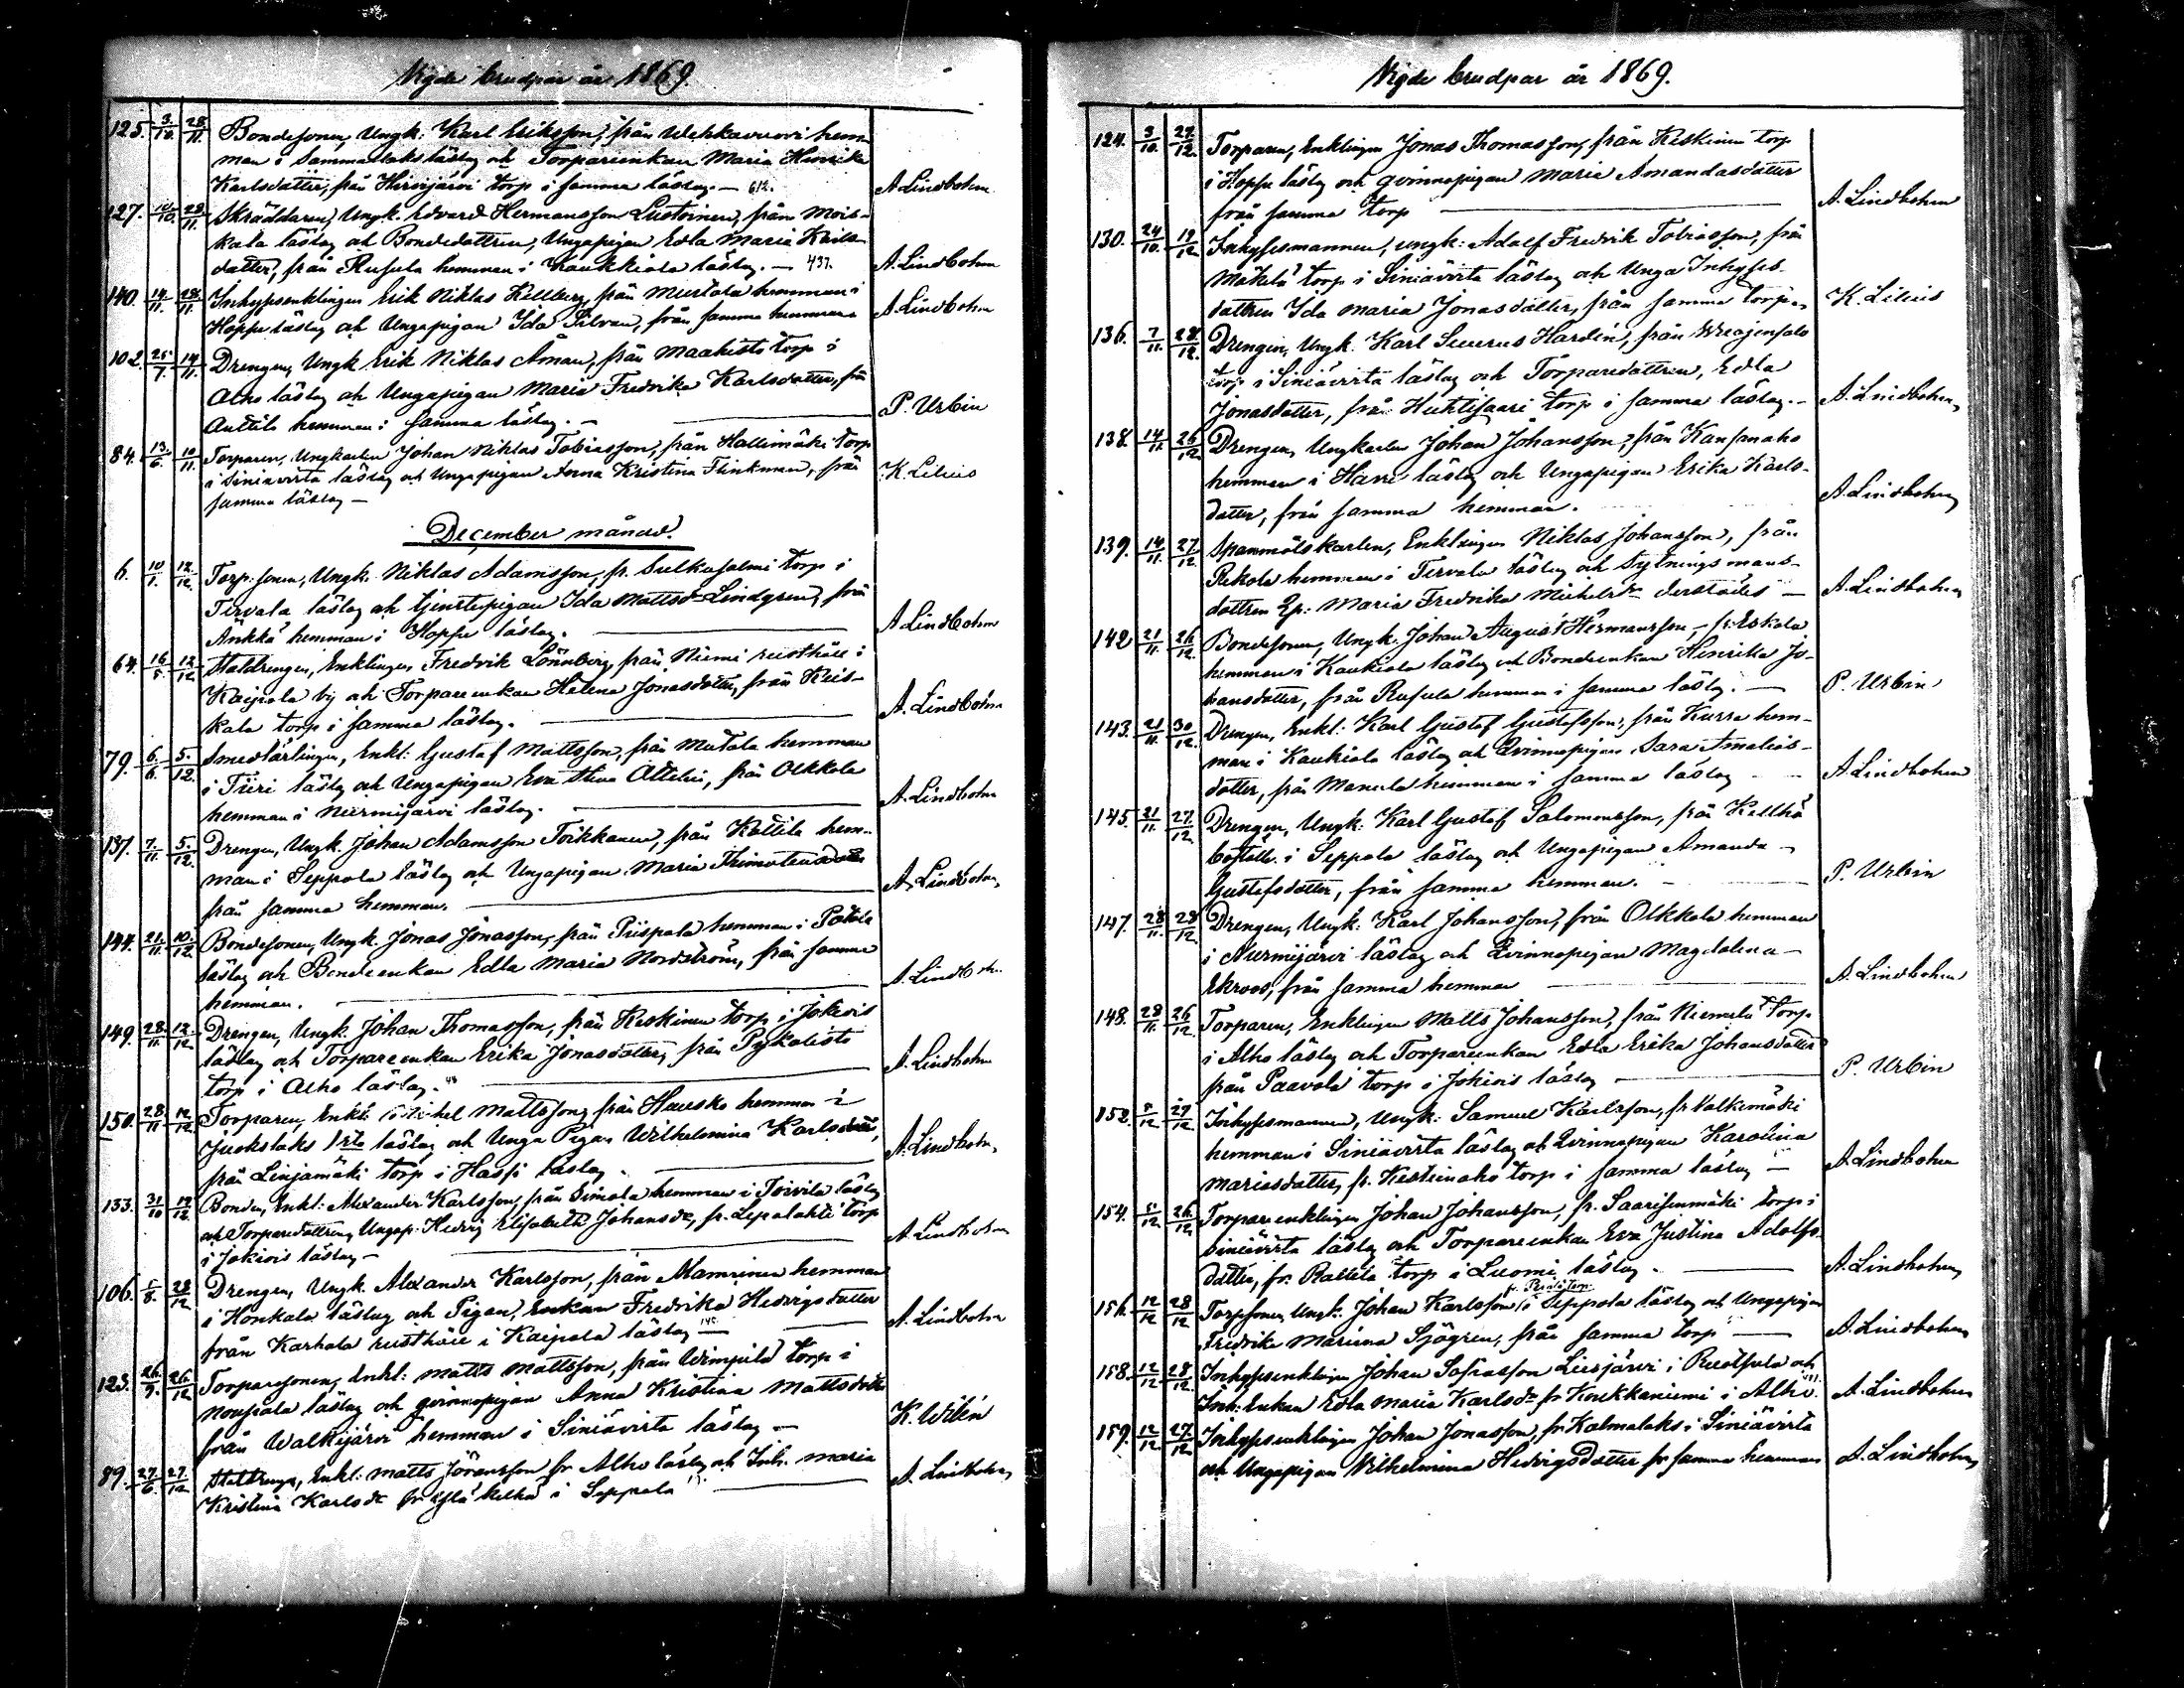 Vigde brudpar år 1869.
125. 3/10. 28/11. Bondesonen, Ungk: Karl Eriksson, från Wehkavuori hem-
man i Sammallaks läslag och Torpareenkan Maria Henrika
Karlsdotter, från Hirvijärvi torp i samma läslag. — 612. A. Lindbohm
127. 10/10. 28/11. Skräddaren, Ungk. Edvard Hermansson Lustoinen, från Mois-
kala läslag och Bondedottren, Ungapigan Edla Maria Karls-
dotter, från Rusula hemman i Kaukkiala läslag. — 437. A. Lindbohm
140. 14/11. 28/11. Inhysesenklingen Erik Niklas Kellberg, från Murtola hemman i
Hopsu läslag och Ungapigan Ida Silvan, från samma hemman A. Lindbohm
102. 25/7. 14/11. Drengen, Ungk Erik Niklas Åman, från Maahisto torp i
Alho läslag och Ungapigan Maria Fredrika Karlsdotter, från
Anttila hemman i samma läslag. — P. Urbin
84. 13/6. 10/11. Torparen, Ungkarlen Johan Niklas Tobiasson, från Hallimäki torp
i Siniävirta läslag och Ungapigan Anna Kristina Flinkman, från
samma läslag — K. Lilius
December månad.
6. 10/1. 12/12. Torp. sonen, Ungk. Niklas Adamsson, fr. Sulkusalmi torp i
Tervala läslag och tjenstepigan Ida Mattsdr Lindgren, från
Ankka hemman i Hopsu läslag. A. Lindbohm
64. 16/5. 12/12. Staldrengen, Enklingen Fredrik Lönnberg, från Niemi rusthåll i
Kaipola by och Torpareenkan Helena Jonasdotter, från Keis-
kala torp i samma läslag. A. Lindbohm
79. 6/6. 5/12. Smedlärlingen, Enkl: Gustaf Mattsson, från Matala hemman
i Tiiri läslag och Ungapigan Eva Stina Ottelin, från Olkkola
hemman i Nurmijärvi läslag. A. Lindbohm
137. 7/11. 5/12. Drengen, Ungk. Johan Adamsson Toikkanen, från Kattila hem-
man i Seppola läslag och Ungapigan Maria Thimoteusdotter
från samma hemman. A. Lindbohm
144. 21/11. 10/12. Bondesonen, Ungk. Jonas Jonasson, från Piispala hemman i Patala
läslag och Bondeenkan Edla Maria Nordström, från samma
hemman. A. Lindbohm
149. 28/11. 12/12. Drengen, Ungk. Johan Thomasson, från Keskinen torp i Jokiois
läslag och Torpareenkan Erika Jonasdotter, från Pykälistö
torp i Alho läslag. A. Lindbohm
150. 28/11 12/12. Torparen, Enkl: Mickel Mattsson, från Hausko hemman i
Juokslaks 1sta läslag och Unga Pigan Wilhelmina Karlsdotter,
från Linjamäki torp i Hassi läslag. A. Lindbohm
133. 31/10 19/12. Bonden, Enkl: Alexander Karlsson, från Simola hemman i Toivila läslag
och Torparedottren, Ungap: Hedvig Elisabeth Johansdr, fr. Lepalahti torp
i Jokiois läslag — A. Lindbohm
106. 8. 28/12 Drengen, Ungk. Alexander Karlsson, från Mamrinen hemman
i Honkala läslag och Pigan, Enkan Fredrika Hedvigsdotter
från Karhola rusthåll i Kaipola läslag — A. Lindbohm
123. 26/9. 26/12 Torparesonen, Enkl: Matts Mattsson, från Wimpilä torp i
Noupola läslag och qvinnopigan Anna Kristina Mattsdotter
från Walkijärvi hemman i Siniävirta läslag — K. Wilén
89. 27/6. 27/12 Staldrengen, Enkl: Matts Jöransson fr Alho läslag och Inh. Maria
Kristina Karlsdr fr Kelhä i Seppola A. Lindbohm
Vigde brudpar år 1869.
124. 3/10. 27/12. Torparen, Enklingen Jonas Thomasson, från Keskinen torp
i Hopsu läslag och qvinnopigan Maria Amandasdotter
från samma torp A. Lindbohm
130. 24/10. 19/12 Inhysesmannen, ungk: Adolf Fredrik Tobiasson, från
Mäkelä torp i Siniävirta läslag och Unga Inhyses-
dottren Ida Maria Jonasdotter, från samma torp. K. Lilius
136. 7/11. 28/12. Drengen, Ungk. Karl Severus Hardén, från
torp i Siniävirta läslag och Torparedottren, Edla
Jonasdotter, från Huhtisaari torp i samma läslag. — A. Lindbohm
138. 14/11. 26/12 Drengen, Ungkarlen Johan Johansson, från Kansanaho
hemman i Havi läslag och Ungapigan Erika Karls-
dotter, från samma hemman. A. Lindbohm
139. 14/11. 27/12 Spannmålskarlen, Enklingen Niklas Johansson, från
Rekola hemman i Tervala läslag och Sytningsmans-
dottren Qp: Maria Fredrika Mickelsdr derstädes — A. Lindbohm
142 21/11. 26/12. Bondesonen, Ungk. Johan August Hermansson, fr. Eskola
hemman i Kaukiala läslag och Bondeenkan Henrika Jo-
hansdotter, från Rusula hemman i samma läslag. — P. Urbin
143. 21/11. 30/12. Drengen, Enkl: Karl Gustaf Gustafsson, från Kurra hem-
man i Kaukiala läslag och Qvinnopigan Sara Amalias-
dotter, från Manula hemman i samma läslag A. Lindbohm
145. 21/11. 27/12. Drengen, Ungk: Karl Gustaf Salomonsson, från Kellhä
boställe i Seppola läslag och Ungapigan Amanda
Gustafsdotter, från samma hemman. P. Urbin
147. 28/11. 28/12. Drengen, Ungk: Karl Johansson, från Olkkola hemman
i Nurmijärvi läslag och Qvinnopigan Magdalena
Ekroos, från samma hemman A. Lindbohm
148. 28/11. 26/12. Torparen, Enklingen Matts Johansson, från Niemelä torp
i Alho läslag och Torpareenkan Edla Erika Johansdotter
från Paavola torp i Jokiois läslag P. Urbin
152. 5/12 27/12 Inhysesmannen, Ungk: Samuel Karlsson, fr Valkemäki
hemman i Siniävirta läslag och Qvinnopigan Karolina
Mariasdotter, fr. Kesteinaho torp i samma läslag — A. Lindbohm
154. 5/12 26/12 Torpareenklingen Johan Johansson, fr. Saarisenmäki torp i
Siniävirta läslag och Torpareenkan Eva Justina Adolfs-
dotter, fr. Rattila torp i Luomi läslag. A. Lindbohm
156. 12/12 28/12 Torpsonen, Ungk: Johan Karlsson, i Seppola läslag och Ungapigan
Fredrika Mariana Sjögren, från samma torp A. Lindbohm
158. 12/12 28/12. Inhysesenklingen Johan Lierjärvi i Ruotsula och
Inh: Enkan Edla Maria Karlsdr fr Koukkaniemi i Alho. A. Lindbohm
159. 12/12. 27/12 Inhysesenklingen Johan Jonasson, fr Kalmalaks i Siniävirta
och Ungapigan Wilhelmina Hedvigsdotter fr samma hemman A. Lindbohm